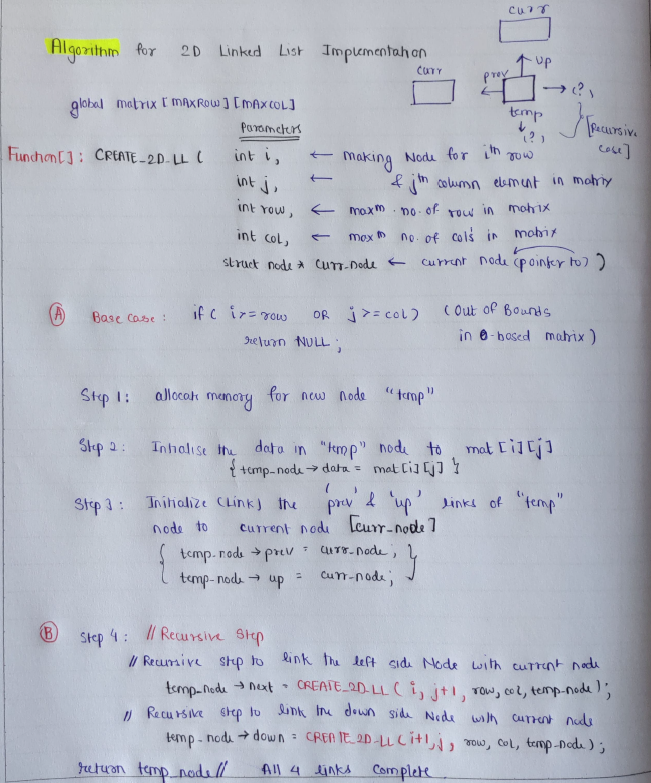 curr
Algorithm for 2D Linked List Implementation
curr
prev
up
(?)
temp
(?)
[Recursive case]
global matrix [MAXROW] [MAXCOL]
Parameters
Function[]: CREATE_2D_LL ( int i, ← making Node for ith row
int j, ← & jth column element in matrix
int row, ← maxm. no. of row in matrix
int col, ← maxm no. of col's in matrix
struct node * curr-node ← current node (pointer to) )
(A) Base case: if ( i >= row OR j >= col) (Out of Bounds
return NULL; in 0-based matrix)
Step 1: allocate memory for new node "temp"
Step 2: Intialise the data in "temp" node to mat [i] [j]
{ temp-node → data = mat [i] [j] }
Step 3: Initialize (Link) the 'prev' & 'up' links of "temp"
node to current node [curr-node]
{ temp-node → prev = curr-node; }
temp-node → up = curr-node;
(B) Step 4: // Recursive Step
// Recursive step to link the left side Node with current node
temp-node → next = CREATE_2D_LL ( i, j+1, row, col, temp-node);
// Recursive step to link the down side Node with current node
temp-node → down = CREATE_2D_LL (i+1, j, row, col, temp-node);
return temp_node // All 4 links complete